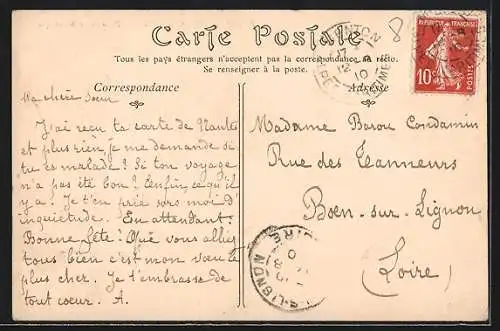 Carte Postale
Tous les pays étrangers n'acceptent pas la correspondance au recto.
Se renseigner à la poste.
Correspondance
Adresse
8
REPUBLIQUE FRANÇAISE
10c
POSTES
Ma chère soeur
J'ai reçu ta carte de Nantes
et plus rien je me demande si
tu es malade? Si ton voyage
n'a pas été bon? Enfin ce qu'il
y a? Je t'en prie sors moi d'
inquiétude. En attendant:
Bonne fête! Que vous alliez
tous bien c'est mon vœu le
plus cher. Je t'embrasse de
tout coeur. A.
Madame Barou Condamin
Rue des Tanneurs
Boën-sur-Lignon
(Loire)
LOIRE
S-LIGNON